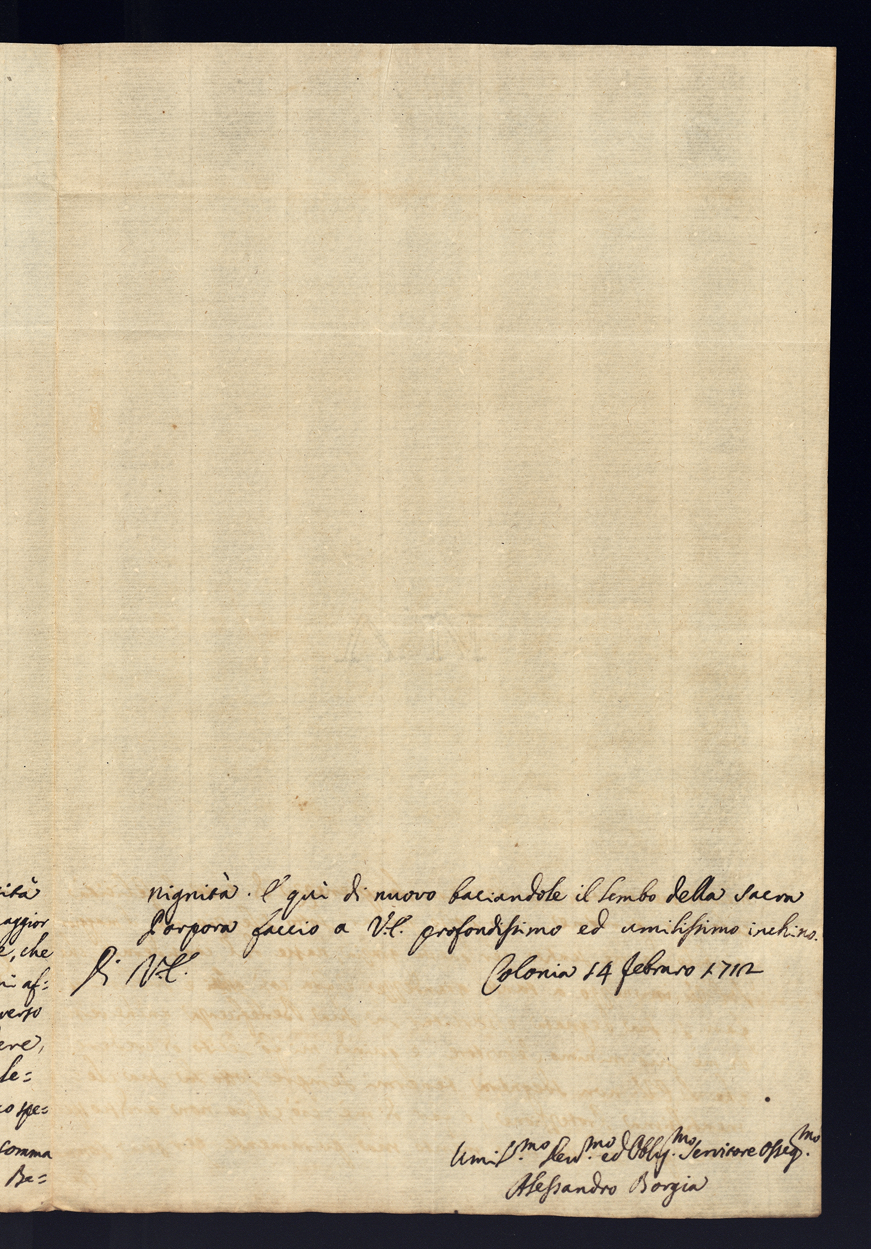 ità
aggior
e, che
ni af=
verso
ere,
le=
o spe=
comma
Be=
nignità. E quì di nuovo baciandole il lembo della sacra
Porpora faccio a V.E. profondissimo ed umilissimo inchino.
Di V.E. Colonia 14 Febraro 1712
Umil.mo Dev.mo ed Oblig.mo Servitore Osseq.mo
Alessandro Borgia